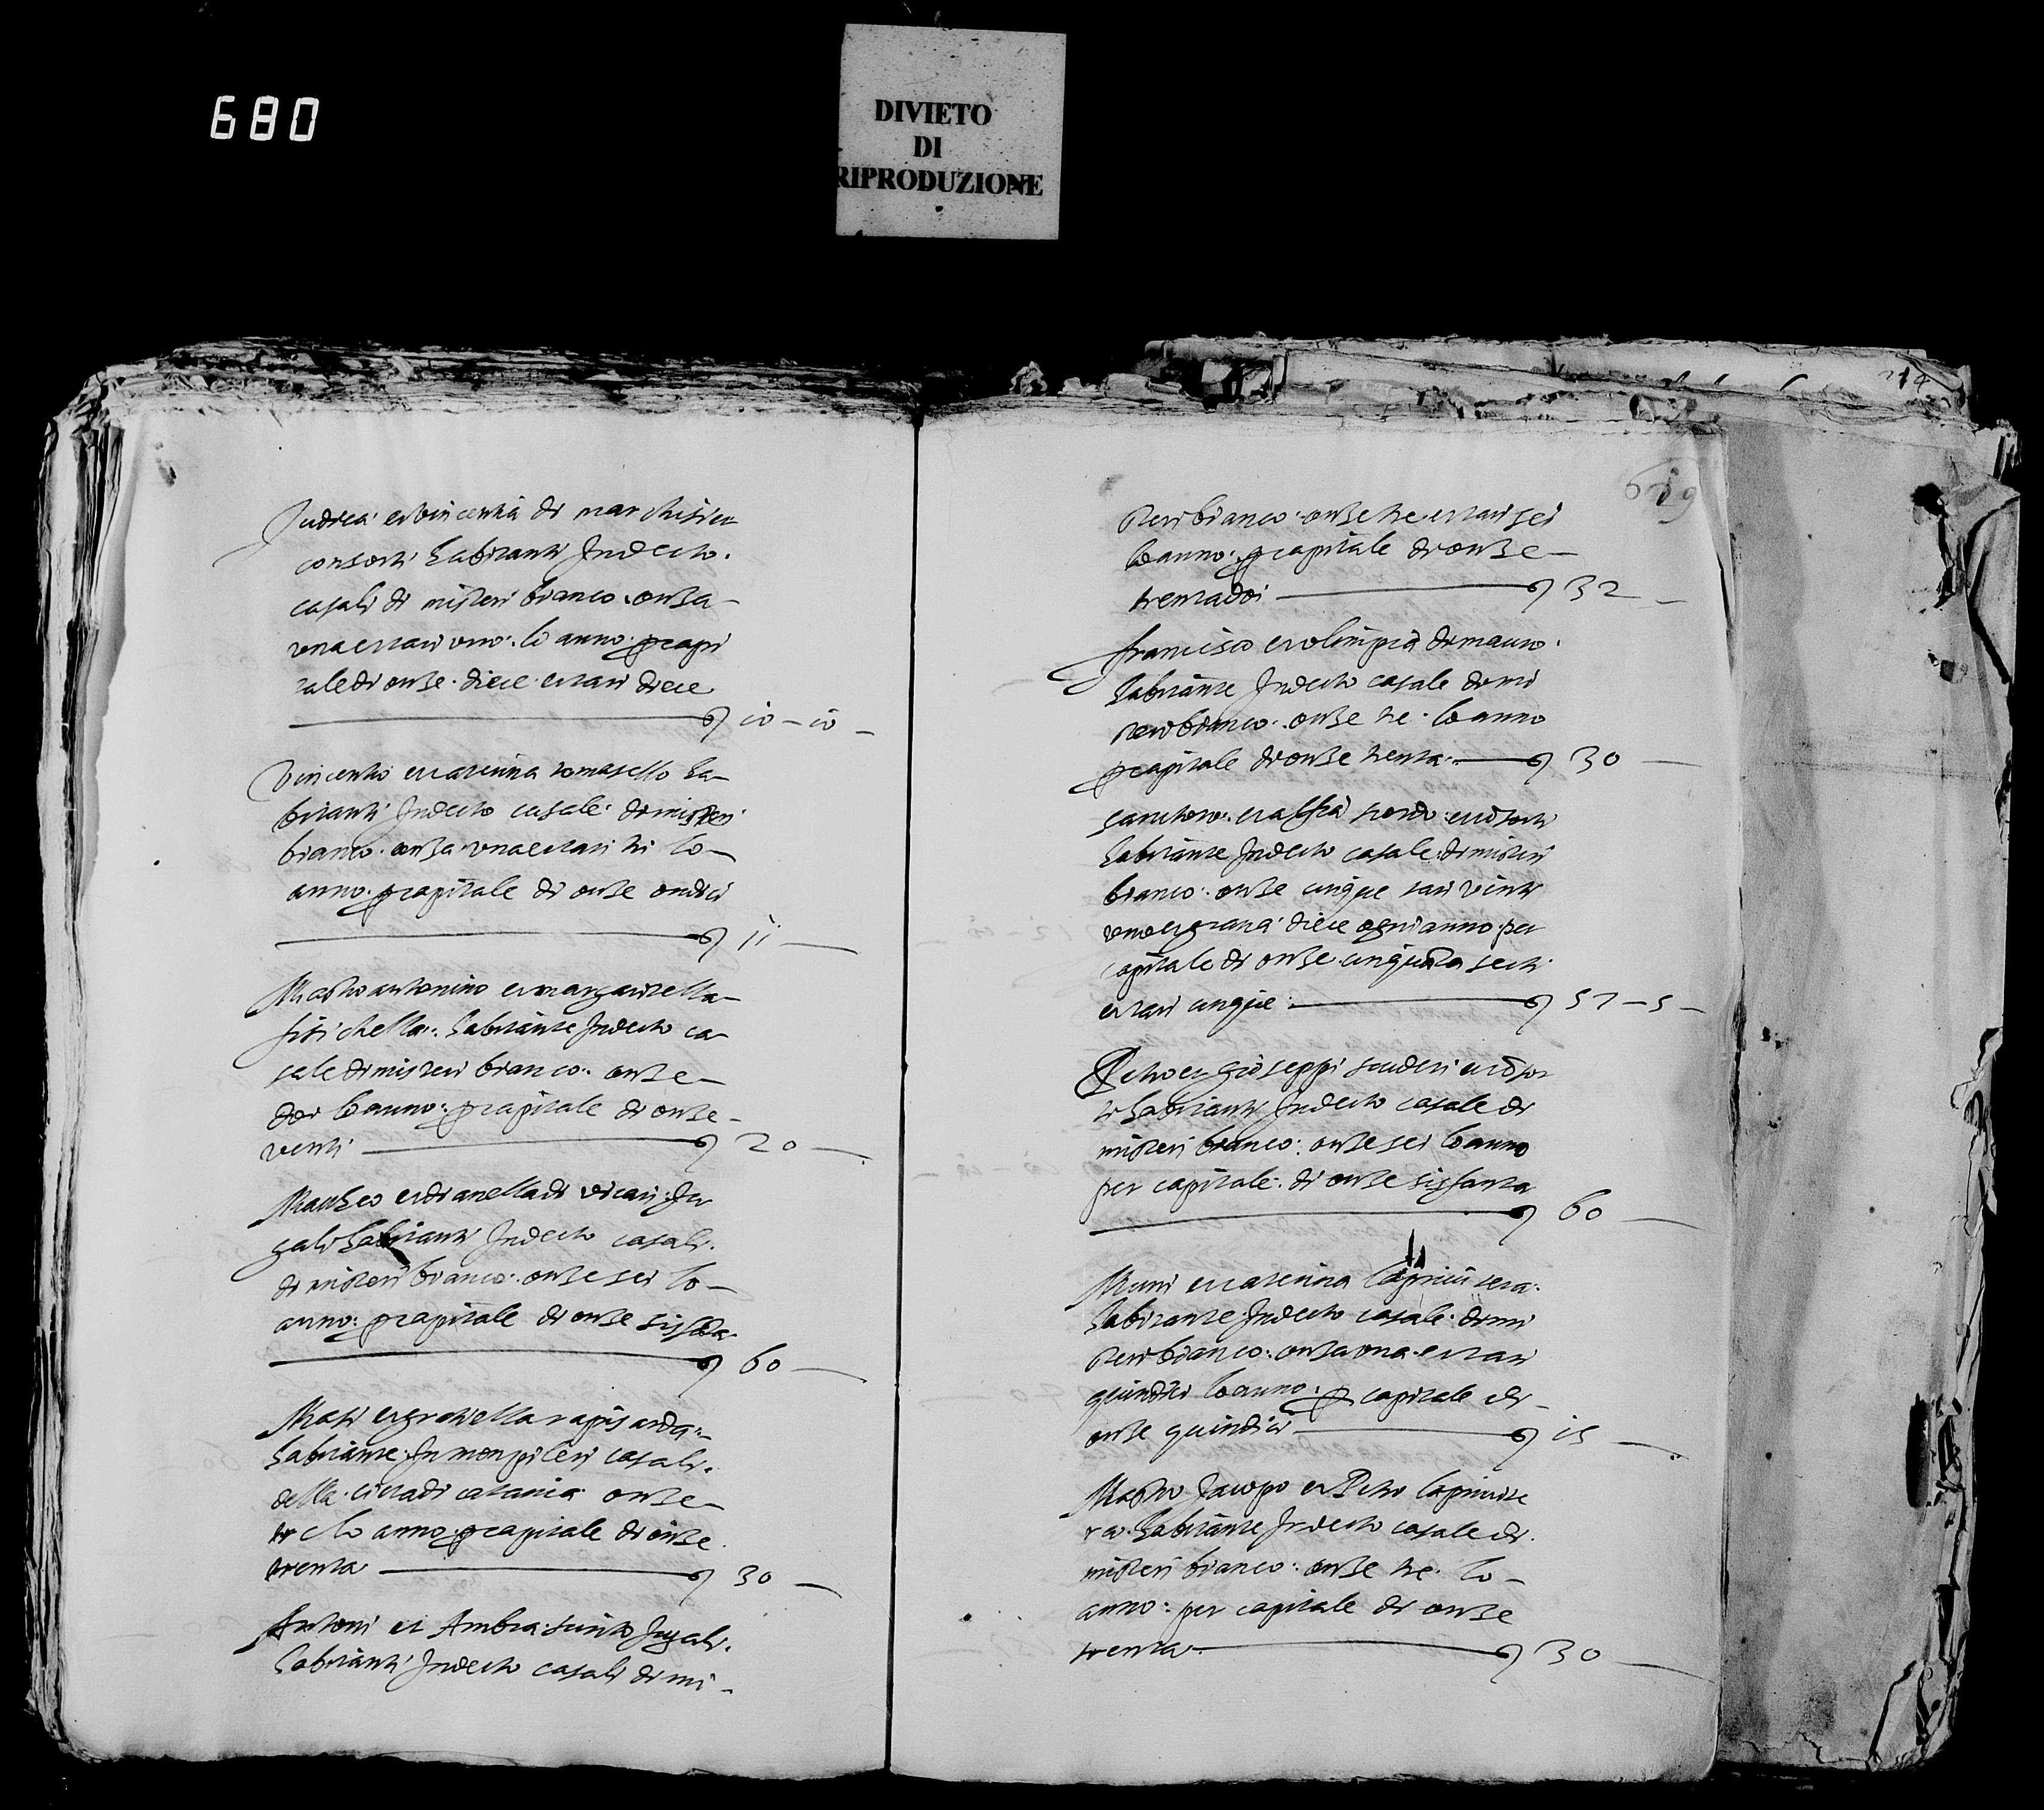 680
DIVIETO
DI
RIPRODUZIONE
214
Judica et vincentia di marchisi et
consorti habitanti Indecto
casali di misteri bianco onza
una et tari uno lo anno p capi
tale di onze diece et tari diece
io – io –
Vincentio et caterina tomasello ha–
bitanti Indecto casale di misteri
bianco onza una et tari tri lo –
anno p capitale di onze ondici
11 –
Mastro antonino et margaritella
fisichella habitante Indecto ca
sale di misteri bianco onze –
doi lo anno p capitale di onze –
venti 20 –
Mattheo et dianella di vicari Ju
gali habitanti Indecto casali
di misteri bianco onze sei lo –
anno p capitale di onze sissanta
60 –
Masi et gratiella rapisarda
habitante In monpileri casali
della citta di catania onze –
tre lo anno p capitale di onze
trenta 30 –
Antoni et Ambra Jugali
habitanti Indecto casali di mi –
619
steri bianco onze tre et tari sei
lo anno p capitale di onze –
trentadoi 32 –
francisco et olimpia di mauro
habitante Indecto casale di mi
steri bianco onze tre lo anno
p capitale di onze trenta 30 –
Santoro et consorti
habitante Indecto casale di misteri
bianco onze cinque tari vinti
uno et grana diece ogni anno per
capitale di onze cinquanta setti
et tari cinque 57 – 5 –
Petro et gioseppi scuderi et consor
ti habitanti Indecto casale di
misteri bianco onze sei lo anno
per capitale di onze sissanta
60 –
Muni et caterina lapunisera
habitante Indecto casale di mi
steri bianco onza una et tari
quindici lo anno p capitale di –
onze quindici 15 –
Mastro Jacopo et Petro lapunise
ra habitante Indecto casale di
misteri bianco onze tre lo –
anno per capitale di onze
trenta 30 –